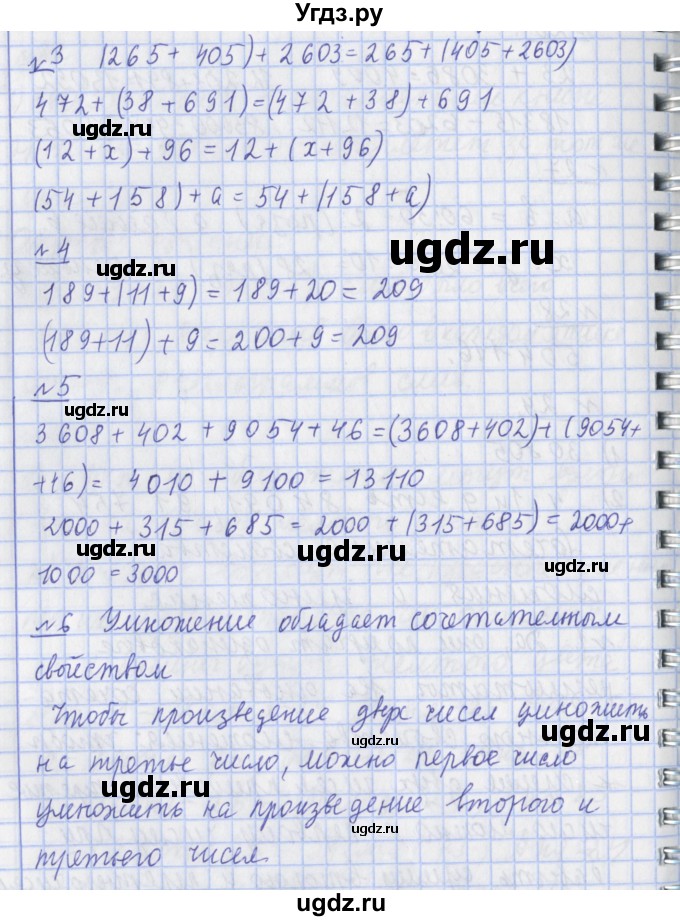 Угдз.ру
№3 (265 + 405) + 2603 = 265 + (405 + 2603)
472 + (38 + 691) = (472 + 38) + 691
ugdz.ru ugdz.ru
(12 + x) + 96 = 12 + (x + 96)
(54 + 158) + a = 54 + (158 + a)
№4
ugdz.ru
ugdz.ru
189 + (11 + 9) = 189 + 20 = 209
(189 + 11) + 9 = 200 + 9 = 209
№5
ugdz.ru ugdz.ru
3 608 + 402 + 9 054 + 46 = (3608 + 402) + (9054 +
+46) = 4010 + 9100 = 13110
2000 + 315 + 685 = 2000 + (315 + 685) = 2000 +
ugdz.ru ugdz.ru
1000 = 3000
№6 Умножение обладает сочетательным
свойством
Чтобы произведение двух чисел умножить
ugdz.ru ugdz.ru
на третье число, можно первое число
умножить на произведение второго и
ugdz.ru ugdz.ru
третьего чисел.
ugdz.ru